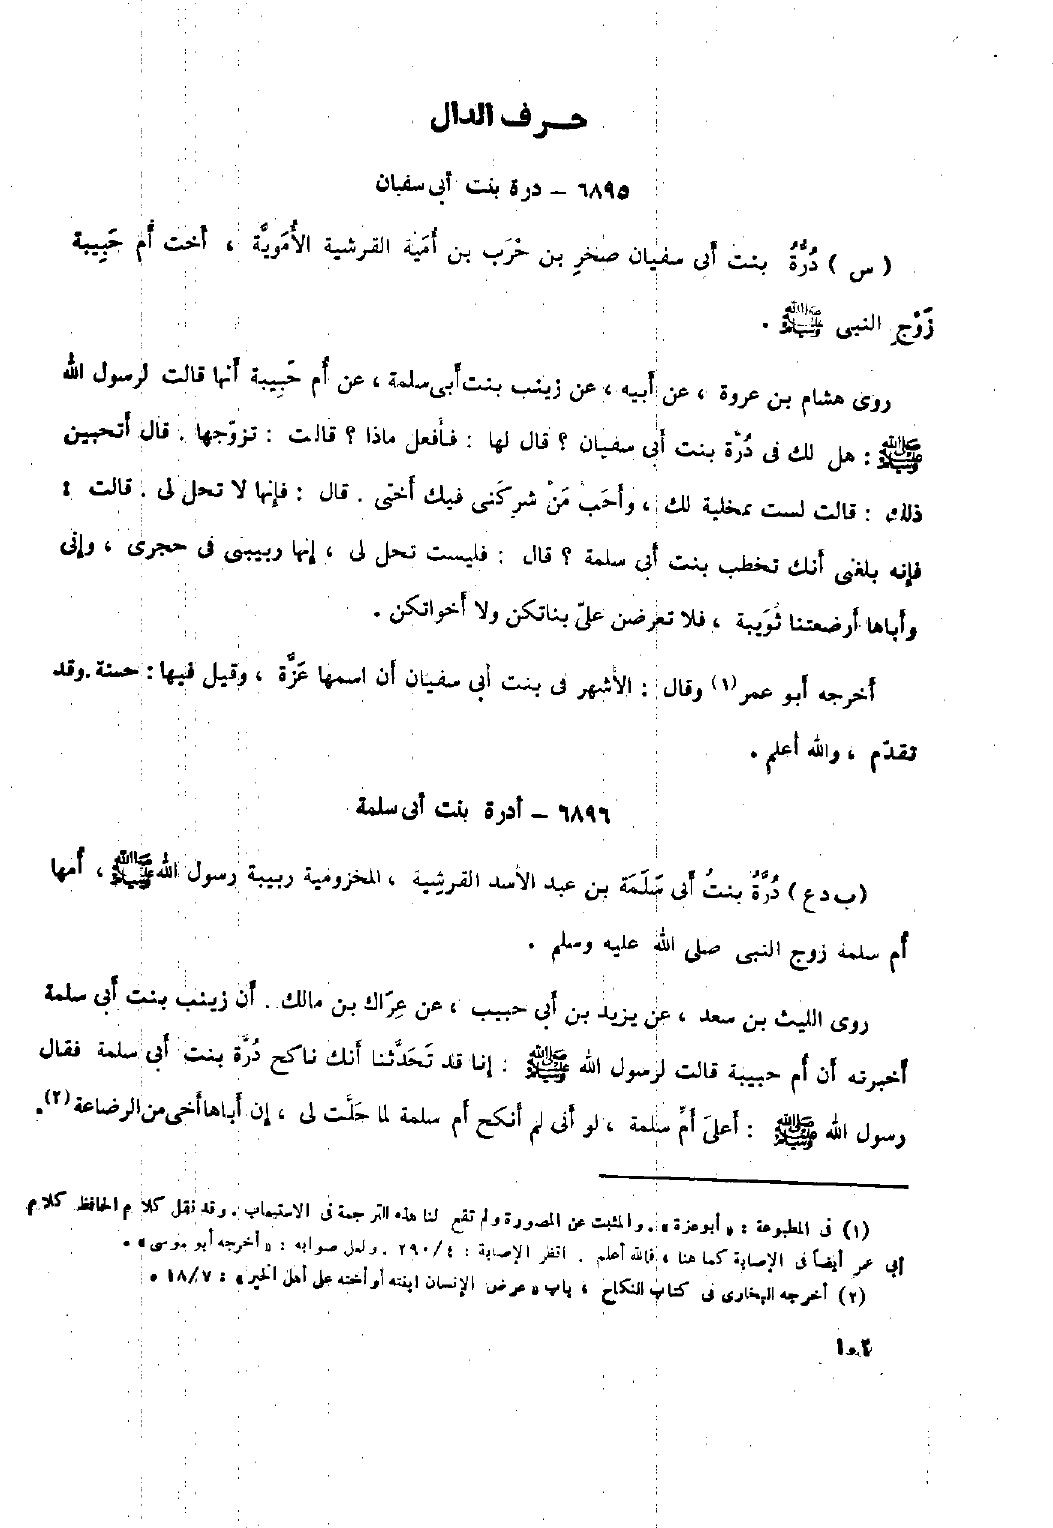 حرف الدال
٦٨٩٥ – درة بنت أبى سفيان
( س ) دُرَّةُ بنت أبى سفيان صخرِ بن حْرَب بن أُمَية القرشية الأُمَويَّة ، أخت أُم حَبِيبة
زَوْجِ النبى ﷺ .
روى هشام بن عروة ، عن أبيه ، عن زينب بنت أبى سلمة ، عن أُم حَبِيبة أنها قالت لرسول الله
ﷺ : هل لك فى دُرَّة بنت أبى سفيان ؟ قال لها : فأفعل ماذا ؟ قالت : تزوّجها . قال أتحبين
ذلك : قالت لست بمخلية لك ، وأَحَب مَنْ شرِكَنى فيك أختى . قال : فإنها لا تحل لى . قالت :
فإنه بلغنى أنك تخطب بنت أبى سلمة ؟ قال : فليست تحل لى ، إنها ربيبتى فى حجرى ، وإنى
وأباها أرضعتنا ثُوَيبة ، فلا تعرضن علىّ بناتكن ولا أخواتكن .
أخرجه أبو عمر (١) وقال : الأشهر فى بنت أبى سفيان أن اسمها عَزَّة ، وقيل فيها : حسنة . وقد
تقدّم ، والله أعلم .
٦٨٩٦ – أدرة بنت أبى سلمة
(ب د ع ) دُرَّةُ بنتُ أبى سَلَمَة بن عبد الأسد القرشِية ، المخزومية ربيبة رسول الله ﷺ ، أمها
أم سلمة زوج النبى صلى الله عليه وسلم .
روى الليث بن سعد ، عن يزيد بن أبى حبيب ، عن عِرَاك بن مالك . أن زينب بنت أبى سلمة
أخبرته أن أم حبيبة قالت لرسول الله ﷺ : إنا قد تَحَدَّثنا أنك ناكح دُرَّة بنت أبى سلمة فقال
رسول الله ﷺ : أعلىَ أمِّ سلمة ، لو أنى لم أنكح أم سلمة لما حَلَّت لى ، إن أباها أخى من الرضاعة (٢) .
(١) فى المطبوعة : « أبو عزة » . والمثبت عن المصورة ولم تقع لنا هذه الترجمة فى الاستيعاب . وقد نقل كلام الحافظ كلام
أبى عمر أيضاً فى الإصابة كما هنا ، فالله أعلم . انظر الإصابة : ٤/ ٢٩٠ . ولعل صوابه : « أخرجه أبو موسى » .
(٢) أخرجه البخارى فى كتاب النكاح ، باب « عرض الإنسان ابنته أو أخته على أهل الخير » : ٧/ ١٨ .
١٠٢